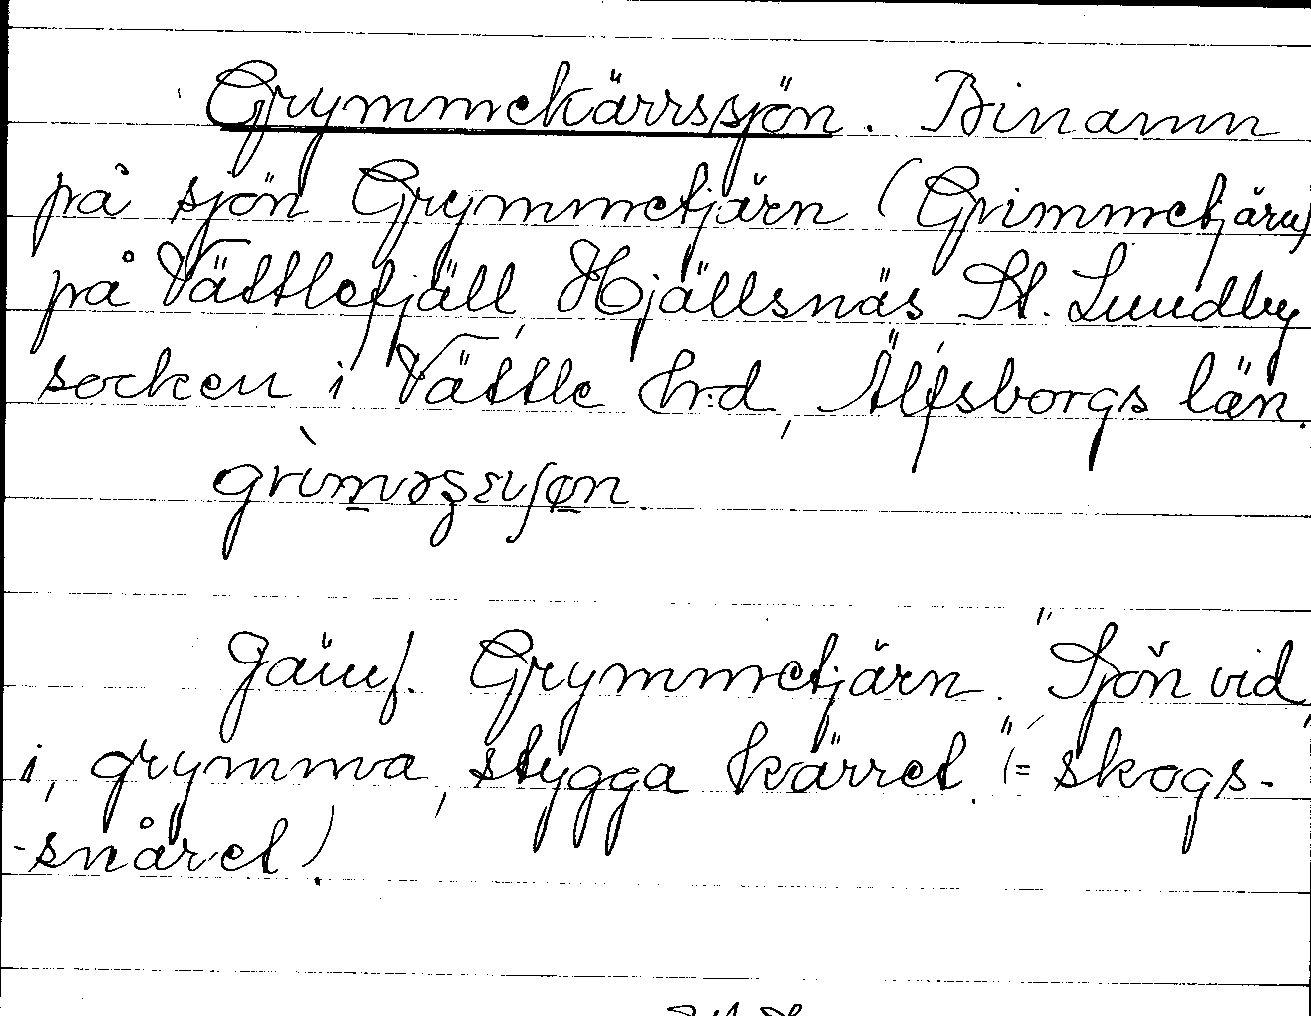 Grymmekärrssjön. Binamn
på sjön Grymmetjärn (Grimmetjärn)
på Vättlefjäll, Hjällsnäs St. Lundby
socken i Vättle hrd, Älfsborgs län.
Jämf. Grymmetjärn. "Sjön vid,
i, grymma, stygga kärret." (= skogs-
-snåret).